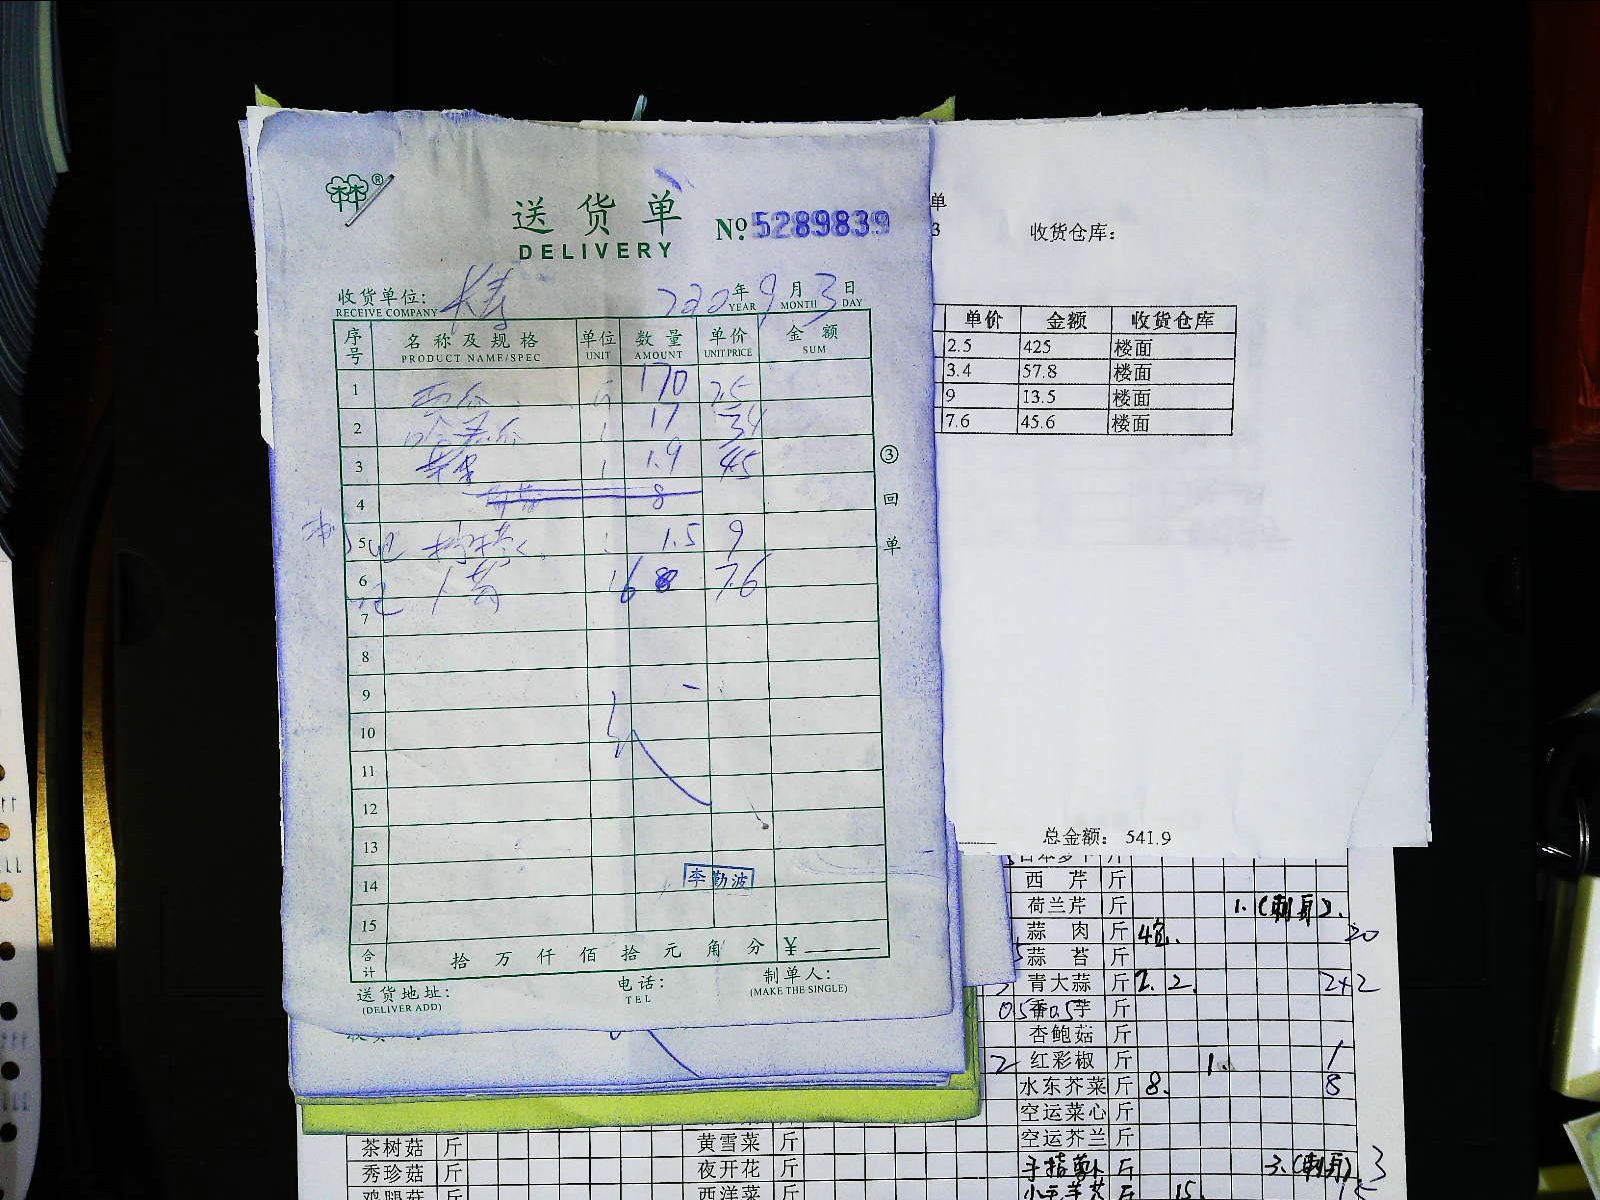 送货单
DELIVERY
№ 5289839
收货单位:
RECEIVE COMPANY
年 9 月 3 日
YEAR MONTH DAY
序号 名称及规格 单位 数量 单价 金额
PRODUCT NAME/SPEC UNIT AMOUNT UNIT PRICE SUM
1 170 2.5
2 17 3.4
3 1.9 45
4 8
5 1.5 9
6 6 7.6
7
8
9
10
11
12
13
14
15
李勤波
合计 拾 万 仟 佰 拾 元 角 分 ¥
送货地址:
(DELIVER ADD)
电话:
TEL
制单人:
(MAKE THE SINGLE)
③回单
单
3
收货仓库:
单价 金额 收货仓库
2.5 425 楼面
3.4 57.8 楼面
9 13.5 楼面
7.6 45.6 楼面
总金额: 541.9
西芹 斤
荷兰芹 斤 1.(刺身).
蒜肉 斤 20
蒜苔 斤
青大蒜 斤 2. 2. 2+2
香芋 斤
杏鲍菇 斤
2 红彩椒 斤 1. 1
水东芥菜 斤 8. 8
空运菜心 斤
空运芥兰 斤
手指萝卜 斤 3.(刺身) 3
斤 15.
茶树菇 斤
秀珍菇 斤
鸡腿菇 斤
黄雪菜 斤
夜开花 斤
西洋菜 斤